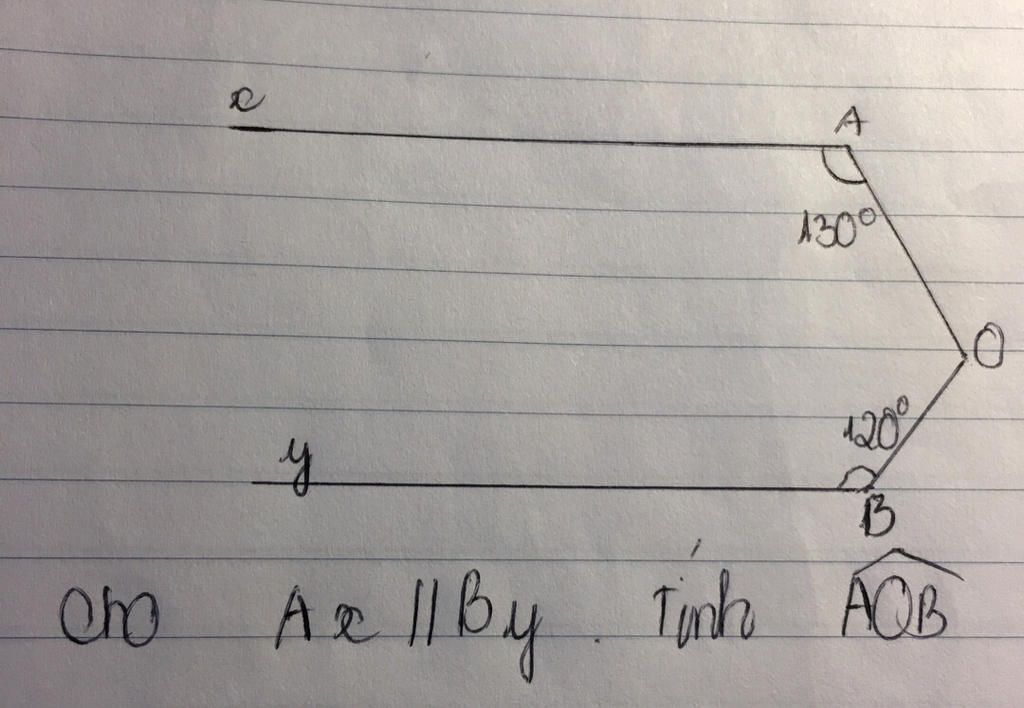 x
A
130°
O
120°
y
B
Cho Ax // By. Tính AOB